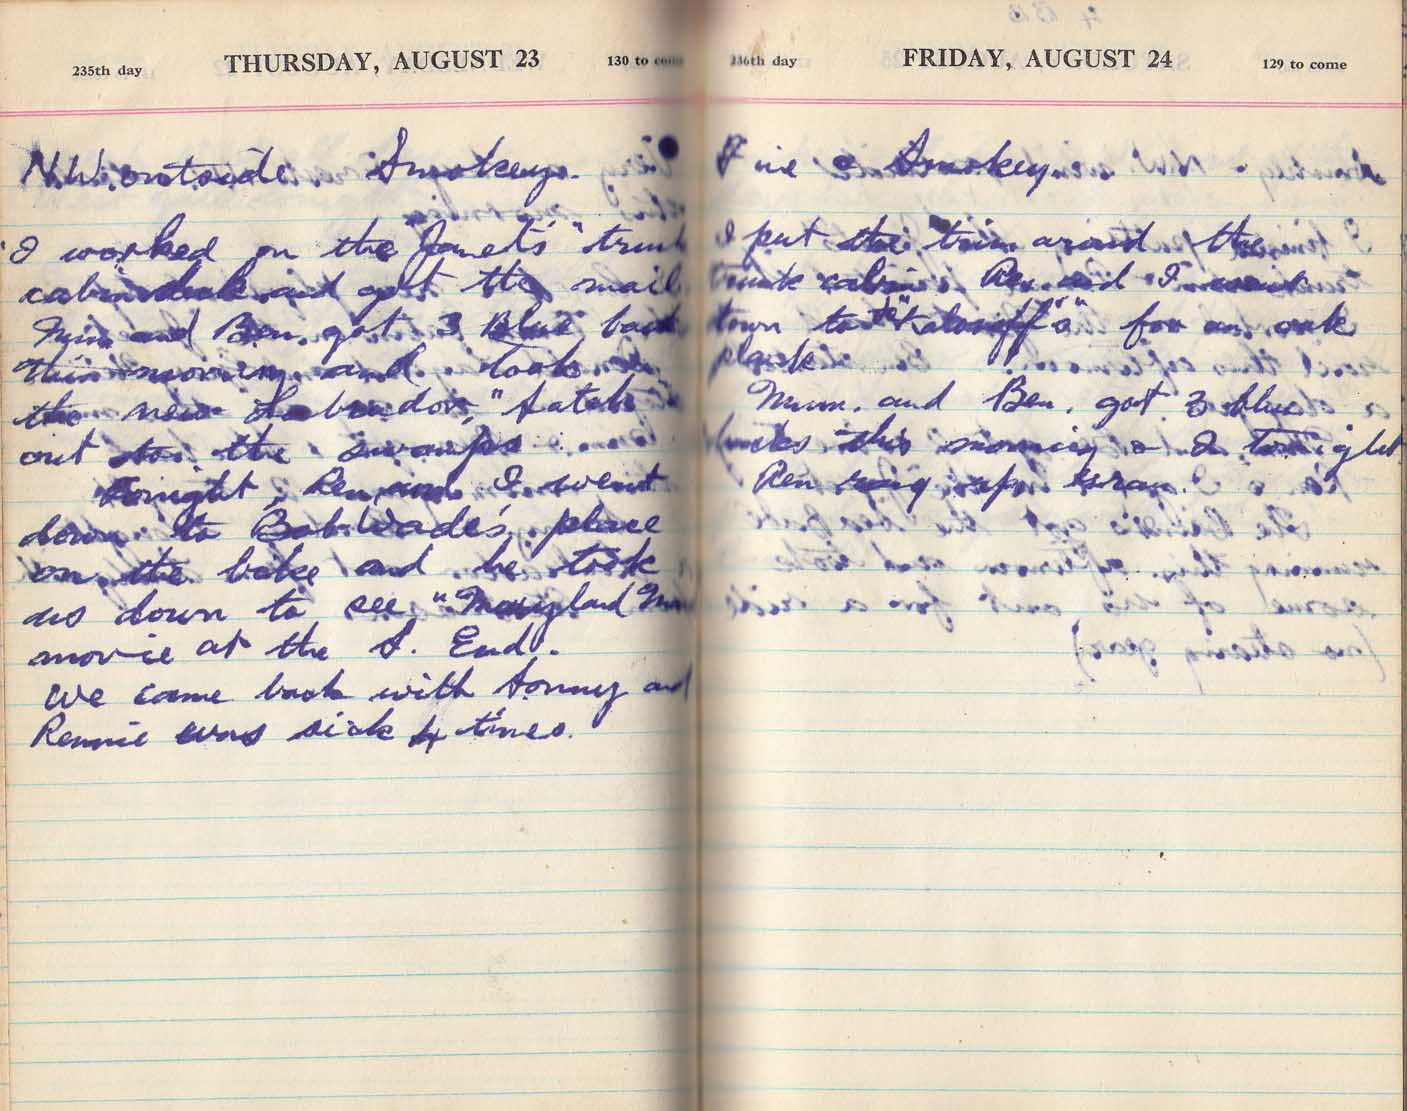 235th day THURSDAY, AUGUST 23 130 to come
N.W. outside Smokey.
I worked on the "Janet's" trunk
cabin and got the mail
Mum and Ben. got 3 Blue
this morning and took
the new Labrador,
out to the swamps
Tonight, Ren and I went
down to Bob Wade's place
on the bike and he took
us down to see "Maryland"
movie at the S. End.
We came back with Sonny and
Rennie was sick 4 times.
236th day FRIDAY, AUGUST 24 129 to come
Fine & Smokey
I put the trim around the
trunk cabin. Ren and I went
town to for an oak
plank
Mum. and Ben. got 3 blue
this morning & 2 tonight
Ren